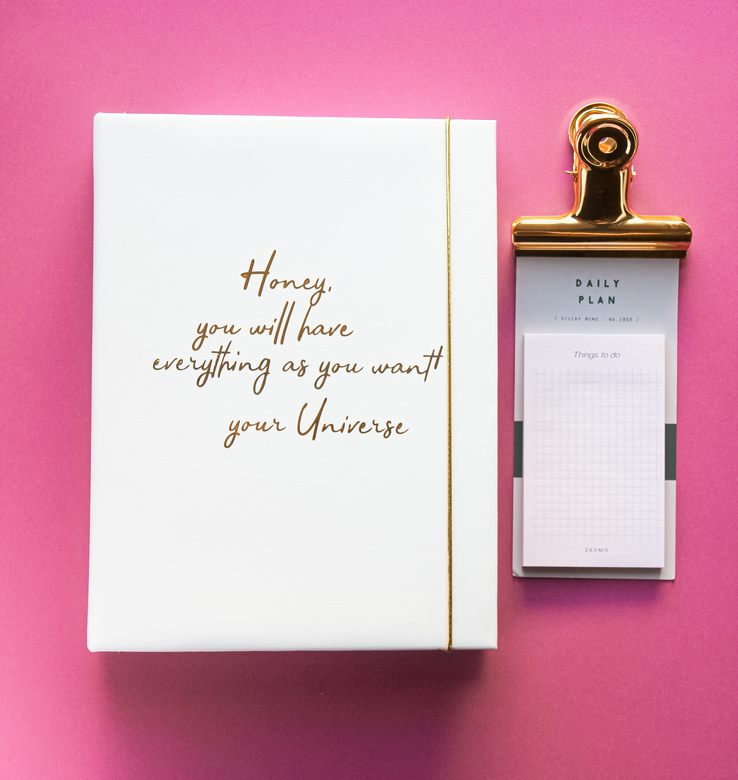 Honey,
you will have
everything as you want
your Universe
DAILY
PLAN
/ STICKY MEMO : NO.1903 /
Things to do
ZAOMO